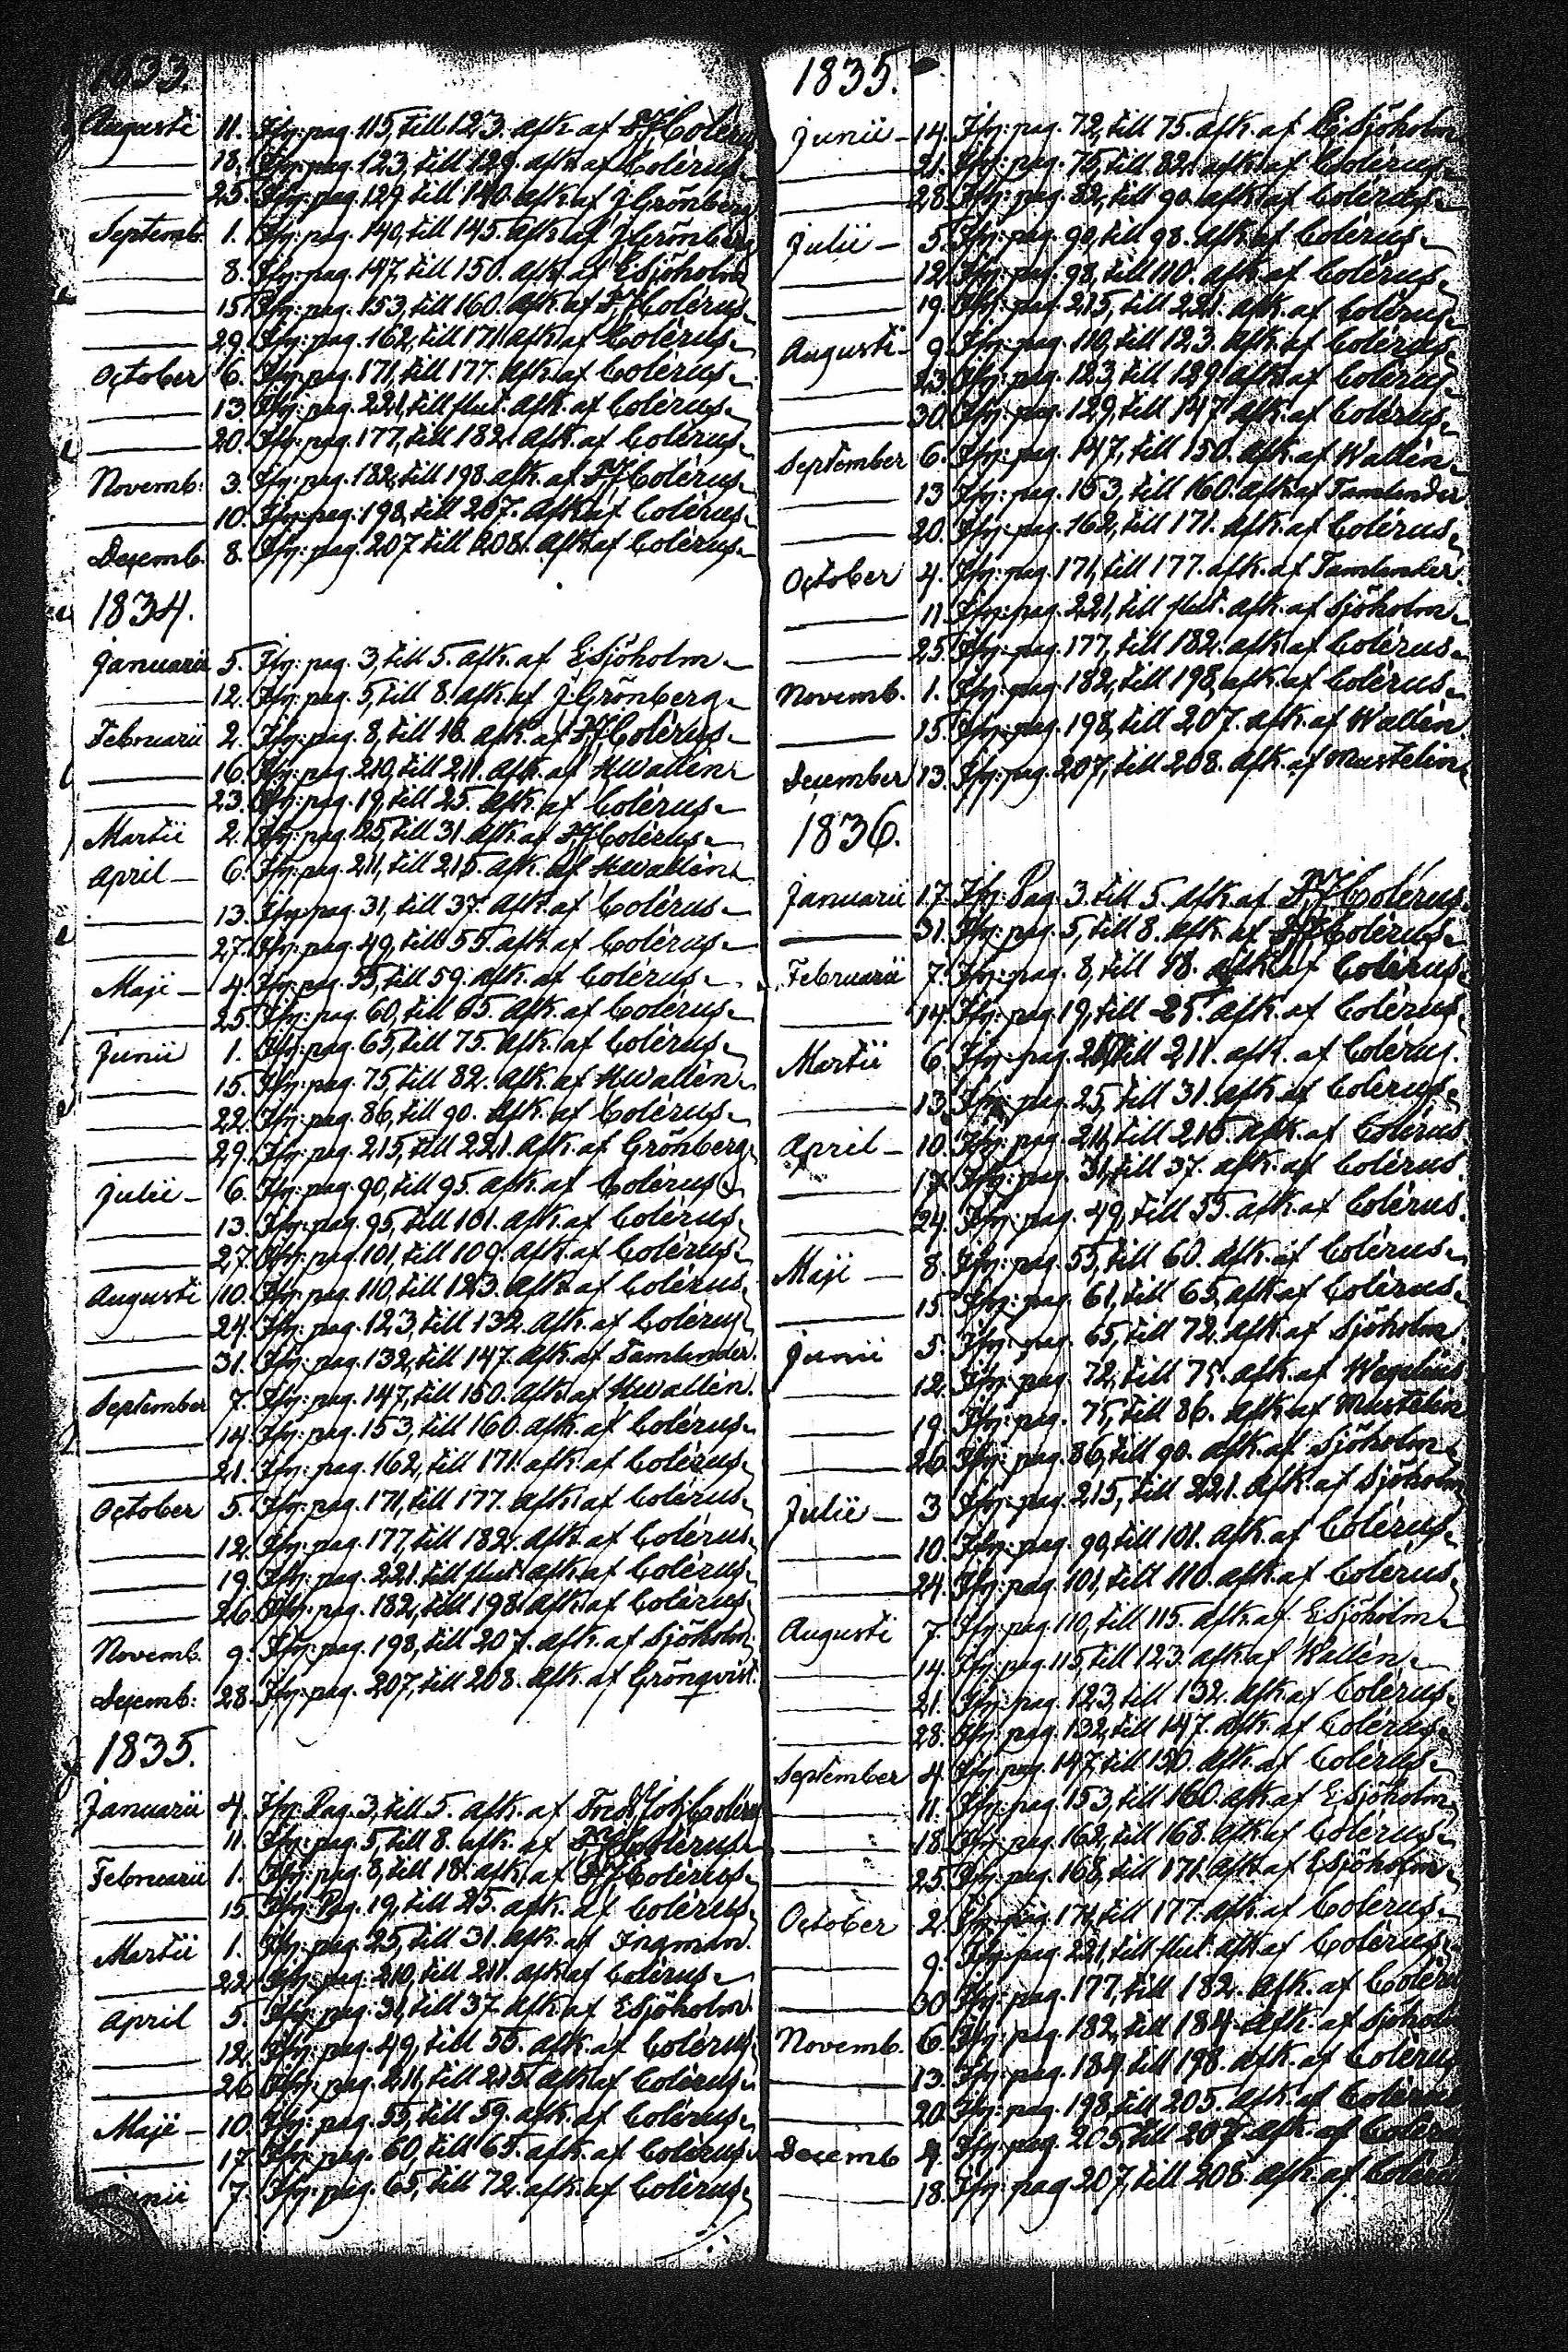 1833.
Augusti 11. Ifr: pag. 115, till 123. afk. af F J Colérus
—— 18. Ifr: pag. 123, till 129. afk. af Colérus.
—— 25. Ifr: pag. 129. till 140. afk. af J Grönberg
Septemb. 1. Ifr: pag. 140, till 145. afk. af J Grönberg
—— 8. Ifr: pag. 147, till 150. afk. af E Sjöholm
—— 15. Ifr: pag. 153, till 160. afk. af F J Colérus.
—— 29. Ifr: pag. 162, till 171. afk. af Colérus.
October 6. Ifr: pag. 171, till 177. afk. af Colérus.
—— 13. Ifr: pag. 221, till slut. afk. af Colérus.
—— 20. Ifr: pag. 177, till 182. afk. af Colérus.
Novemb: 3. Ifr: pag. 182, till 198. afk. af F J Colérus.
—— 10. Ifr: pag. 198, till 207. afk. af Colérus.
Decemb. 8. Ifr: pag. 207 till 208. afk. af Colérus.
1834.
Januarii 5. Ifr: pag. 3, till 5. afk. af E Sjöholm.
—— 12. Ifr: pag. 5, till 8. afk. af J Grönberg.
Februarii 2. Ifr: pag. 8, till 18. afk. af F J Colérus.
—— 16. Ifr: pag. 210, till 211. afk. af H Wallén
—— 23. Ifr: pag. 19, till 25. afk. af Colérus.
Martii 2. Ifr: pag. 25, till 31. afk. af F J Colérus.
April — 6. Ifr: pag. 211, till 215. afk. af H Wallén
—— 13. Ifr: pag. 31, till 37. afk. af Colérus.
—— 27. Ifr: pag. 49, till 55. afk. af Colérus.
Maji — 4. Ifr: pag. 55, till 59. afk. af Colérus.
—— 25. Ifr: pag. 60, till 65. afk. af Colérus.
Junii 1. Ifr: pag. 65, till 75. afk. af Colérus.
—— 15. Ifr: pag. 75, till 82. afk. af H Wallén.
—— 22. Ifr: pag. 86, till 90. afk. af Colérus.
—— 29. Ifr: pag. 215, till 221. afk. af Grönberg.
Julii — 6. Ifr: pag. 90, till 95. afk. af Colérus
—— 13. Ifr: pag. 95, till 101. afk. af Colérus.
—— 27. Ifr: pag. 101, till 109. afk. af Colérus.
Augusti 10. Ifr: pag. 110, till 123. afk. af Colérus.
—— 24. Ifr: pag. 123, till 132. afk. af Colérus
—— 31. Ifr: pag. 132, till 147. afk. af Tamlander.
September 7. Ifr: pag. 147, till 150. afk. af H Wallén.
—— 14. Ifr: pag. 153, till 160. afk. af Colérus.
—— 21. Ifr: pag. 162, till 171. afk. af Colérus.
October 5. Ifr: pag. 171, till 177. afk. af Colérus.
—— 12. Ifr: pag. 177, till 182. afk. af Colérus.
—— 19. Ifr: pag. 221. till slut. afk. af Colérus.
—— 26. Ifr: pag. 182, till 198. afk. af Colérus.
Novemb. 9. Ifr: pag. 198, till 207. afk. af Sjöholm.
Decemb: 28. Ifr: pag. 207, till 208. afk. af Grönqvist.
1835.
Januarii 4. Ifr: Pag. 3, till 5. afk. af Fredr Joh: Colérus
—— 11. Ifr: pag. 5, till 8. afk. af F J Colérus.
Februarii 1. Ifr: pag. 8, till 18. afk. af F J Colérus.
—— 15. Ifr: Pag. 19, till 25. afk. af Colérus.
Martii 1. Ifr: pag. 25, till 31. afk. af Ingman.
—— 22. Ifr: pag. 210, till 211. afk. af Colérus.
April 5. Ifr: pag. 31, till 37. afk. af E Sjöholm.
—— 12. Ifr: pag. 49, till 55. afk. af Colérus
—— 26. Ifr: pag. 211, till 215. afk. af Colérus.
Maji — 10. Ifr: pag. 55, till 59. afk. af Colérus.
—— 17. Ifr: pag. 60, till 65. afk. af Colérus.
Junii 7. Ifr: pag. 65, till 72. afk. af Colérus.
1835.
Junii — 14. Ifr: pag. 72, till 75. afk. af E Sjöholm
—— 21. Ifr: pag. 75, till 82. afk. af Colérus.
—— 28. Ifr: pag. 82, till 90. afk. af Colérus.
Julii — 5. Ifr: pag. 90, till 98. afk. af Colérus.
—— 12. Ifr: pag. 98, till 110. afk. af Colérus.
—— 19. Ifr: pag. 215, till 221. afk. af Colérus.
Augusti — 9. Ifr: pag. 110, till 123. afk. af Colérus.
—— 23. Ifr: pag. 123, till 129. afk. af Colérus.
—— 30. Ifr: pag. 129, till 147. afk. af Colérus.
September 6. Ifr: pag. 147, till 150. afk. af Wallén.
—— 13. Ifr: pag. 153, till 160. afk. af Tamlander
—— 20. Ifr: pag. 162, till 171. afk. af Colérus.
October 4. Ifr: pag. 171, till 177. afk. af Tamlander.
—— 11. Ifr: pag. 221, till slut. afk. af Sjöholm.
—— 25. Ifr: pag. 177, till 182. afk. af Colérus.
Novemb. 1. Ifr: pag. 182, till 198. afk. af Colérus.
—— 15. Ifr: pag. 198, till 207. afk. af Wallén
December 13. Ifr: pag. 207, till 208. afk. af Mustelin.
1836.
Januarii 17. Ifr: Pag. 3. till 5. afk. af F J Colérus.
—— 31. Ifr: pag. 5, till 8. afk. af F J Colérus.
Februarii 7. Ifr: pag. 8, till 18. afk. af Colérus.
—— 14. Ifr: pag. 19, till 25. afk. af Colérus.
Martii 6. Ifr: pag. till 211. afk. af Colérus.
—— 13. Ifr: pag. 25, till 31. afk. af Colérus.
April — 10. Ifr: pag. 211, till 215. afk. af Colérus
—— 17. Ifr: pag. 31, till 37. afk. af Colérus.
—— 24. Ifr: pag. 49, till 55. afk. af Colérus.
Maji — 8. Ifr: pag. 55, till 60. afk. af Colérus.
—— 15. Ifr: pag. 61, till 65, afk. af Colérus.
Junii 5. Ifr: pag. 65, till 72. afk. af Sjöholm
—— 12. Ifr: pag. 72, till 75. afk. af Wegelius
—— 19. Ifr: pag. 75, till 86. afk. af Mustelin
—— 26. Ifr: pag. 86, till 90. afk. af Sjöholm.
Julii — 3. Ifr: pag. 215, till 221. afk. af Sjöholm
—— 10. Ifr: pag. 90, till 101. afk. af Colérus.
—— 24. Ifr: pag. 101, till 110. afk. af Colérus.
Augusti 7. Ifr: pag. 110, till 115. afk. af E Sjöholm
—— 14. Ifr: pag. 115, till 123. afk. af Wallén.
—— 21. Ifr: pag. 123, till 132. afk. af Colérus.
—— 28. Ifr: pag. 132, till 147. afk. af Colérus.
September 4. Ifr: pag. 147, till 150. afk. af Colérus.
—— 11. Ifr: pag. 153, till 160. afk. af E Sjöholm.
—— 18. Ifr: pag. 162, till 168. afk. af Colérus.
—— 25. Ifr: pag. 168, till 171. afk. af E Sjöholm.
October 2. Ifr: pag. 171, till 177. afk. af Colérus.
—— 9. Ifr: pag. 221, till slut. afk. af Colérus.
—— 30. Ifr: pag. 177, till 182. afk. af Coléru
Novemb. 6. Ifr: pag. 182, till 184. afk. af Sjöholm
—— 13. Ifr: pag. 184 till 198. afk. af Colérus
—— 20. Ifr: pag. 198, till 205. afk. af Colérus
Decemb 4. Ifr: pag. 205, till 207. afk. af Coléru
—— 18. Ifr: pag. 207, till 208. afk. af Coléru